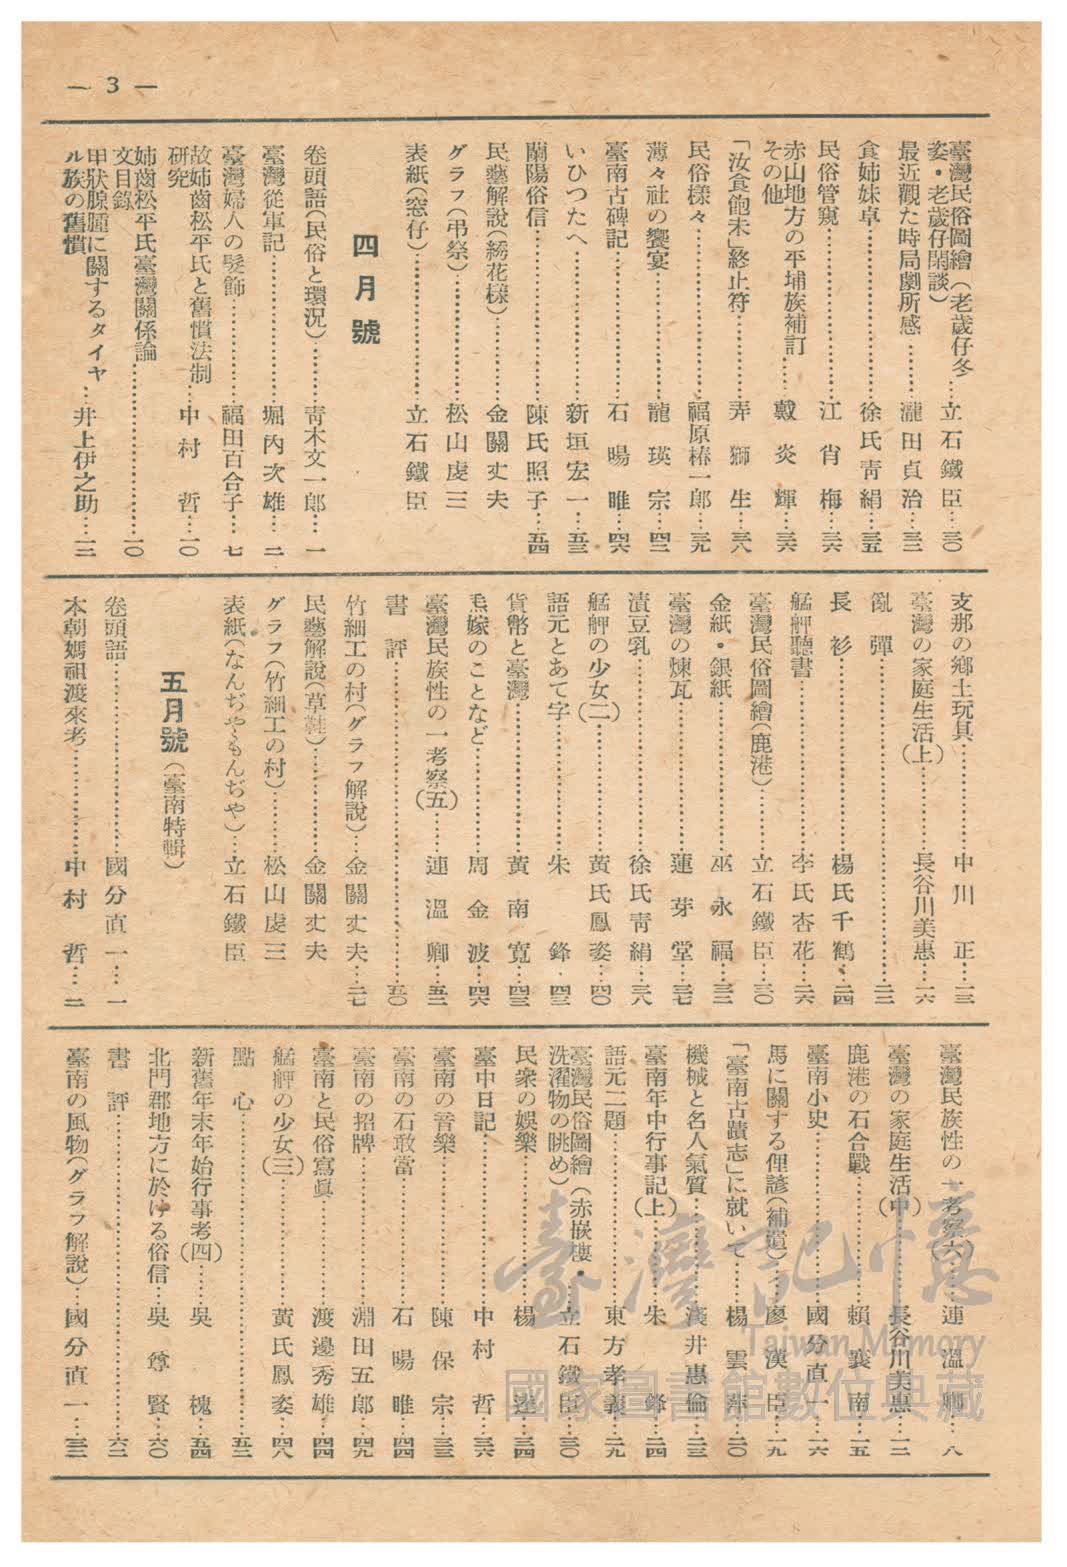 — 3 —
臺灣民俗圖繪（老歲仔冬
姿・老歲仔閑談）…立石鐵臣…三〇
最近觀た時局劇所感……瀧田貞治…三三
食姉妹卓……徐氏靑絹…三五
民俗管窺……江肖梅…三六
赤山地方の平埔族補訂
その他……戴炎輝…三六
「汝食飽未」終止符……弄獅生…三八
民俗樣々……福原椿一郞…三九
薄々社の饗宴……龍瑛宗…四三
臺南古碑記……石暘睢…四六
いひつたへ……新垣宏一…五三
蘭陽俗信……陳氏照子…五四
民藝解說（綉花樣）……金關丈夫
グラフ（弔祭）……松山虔三
表紙（窓仔）……立石鐵臣
四月號
卷頭語（民俗と環況）……靑木文一郞…一
臺灣從軍記……堀內次雄…二
臺灣婦人の髮飾……福田百合子…七
故姉齒松平氏と舊慣法制
硏究……中村哲…一〇
姉齒松平氏臺灣關係論
文目錄……一〇
甲狀腺腫に關するタイヤ
ル族の舊慣…井上伊之助…一二
支那の鄕土玩具……中川正…一三
臺灣の家庭生活（上）……長谷川美惠…一六
亂彈……二三
長衫……楊氏千鶴…二四
艋舺聽書……李氏杏花…二六
臺灣民俗圖繪（鹿港）……立石鐵臣…三〇
金紙・銀紙……巫永福…三二
臺灣の煉瓦……蓮芽堂…三七
漬豆乳……徐氏靑絹…三八
艋舺の少女（二）……黃氏鳳姿…四〇
語元とあて字……朱鋒…四三
貨幣と臺灣……黃南寬…四三
焄嫁のことなど……周金波…四六
臺灣民族性の一考察（五）……連溫卿…五二
書評……五〇
竹細工の村（グラフ解說）…金關丈夫…二七
民藝解說（草鞋）……金關丈夫
グラフ（竹細工の村）……松山虔三
表紙（なんぢやもんぢや）…立石鐵臣
五月號（臺南特輯）
卷頭語……國分直一…一
本朝媽祖渡來考……中村哲…二
臺灣民族性の一考察六……連溫卿…八
臺灣の家庭生活（中）……長谷川美惠…一二
鹿港の石合戰……賴襄南…一五
臺南小史……國分直一…一六
馬に關する俚諺（補遺）…廖漢臣…一九
「臺南古蹟志」に就いて……楊雲萍…二〇
機械と名人氣質……淺井惠倫…二三
臺南年中行事記（上）……朱鋒…二四
語元二題……東方孝義…二九
臺灣民俗圖繪（赤嵌樓・
洗濯物の眺め）…立石鐵臣…三〇
民衆の娛樂……楊逵…三四
臺中日記……中村哲…三六
臺南の音樂……陳保宗…三三
臺南の石敢當……石暘睢…四四
臺南の招牌……淵田五郞…四九
臺南と民俗寫眞……渡邊秀雄…四四
艋舺の少女（三）……黃氏鳳姿…四八
點心……五二
新舊年末年始行事考（四）……吳槐…五四
北門郡地方に於ける俗信……吳尊賢…六〇
書評……六二
臺南の風物（グラフ解說）…國分直一…三二
臺灣記憶
Taiwan Memory
國家圖書館數位典藏